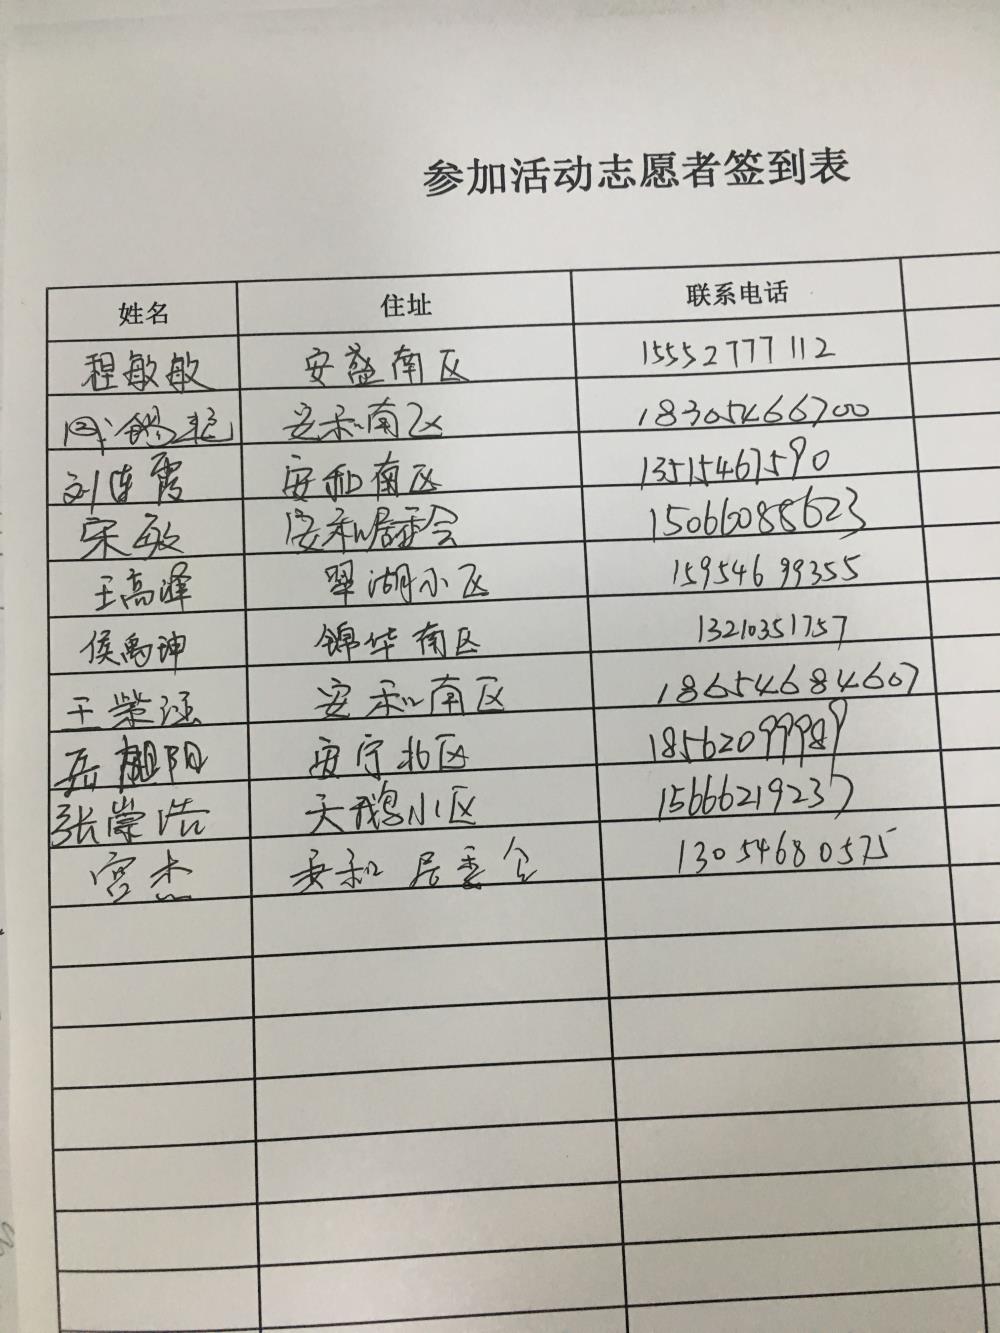 参加活动志愿者签到表
姓名 住址 联系电话
程敏敏 安盛南区 15552777112
安和南区 18305466700
刘连霞 安和南区 13515467590
宋敏 安和居委会 15066088623
王高泽 翠湖小区 15954699355
侯禹坤 锦华南区 13210351757
王荣涵 安和南区 18654684607
岳旭阳 安宁北区 18562099989
张崇浩 天鹅小区 15666219237
宫杰 安和居委会 13054680575